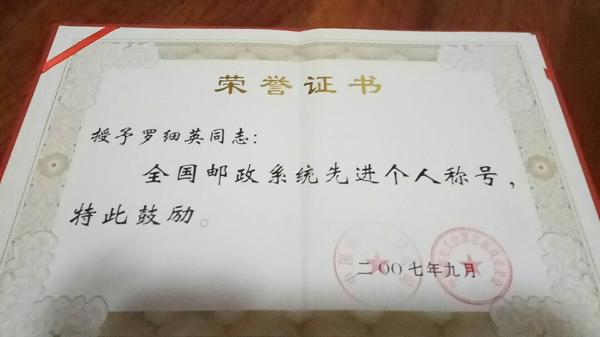 荣誉证书
授予罗细英同志：
全国邮政系统先进个人称号，
特此鼓励。
二〇〇七年九月